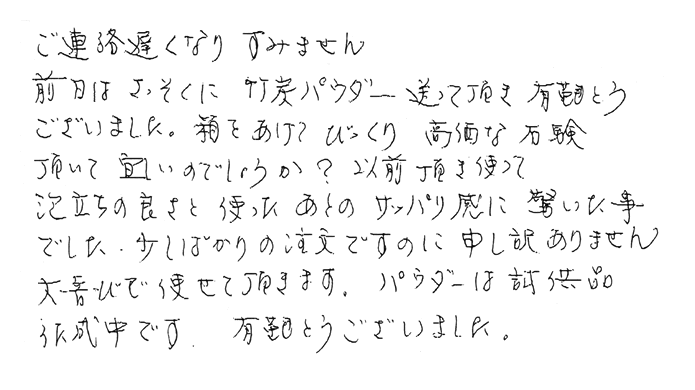 ご連絡遅くなり すみません
前日は さっそくに 竹炭パウダー送って頂き 有難とう
ございました。箱をあけて びっくり 高価な 石験
頂いて 宜いのでしょうか？ 以前 頂き使って
泡立ちの良さと 使った あとの サッパリ感に 驚いた事
でした. 少しばかりの注文ですのに 申し訳ありません
大喜びで 使せて頂きます. パウダーは 試供品
作成中です. 有難とうございました。